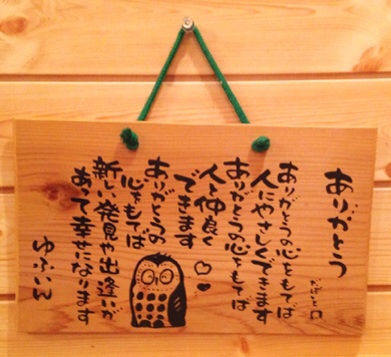 ありがとう
ありがとうの心をもてば
人にやさしくできます
ありがとうの心をもてば
人と仲良く
できます
ありがとうの
心をもてば
新しい発見や出逢いが
あって幸せになります
ゆふいん